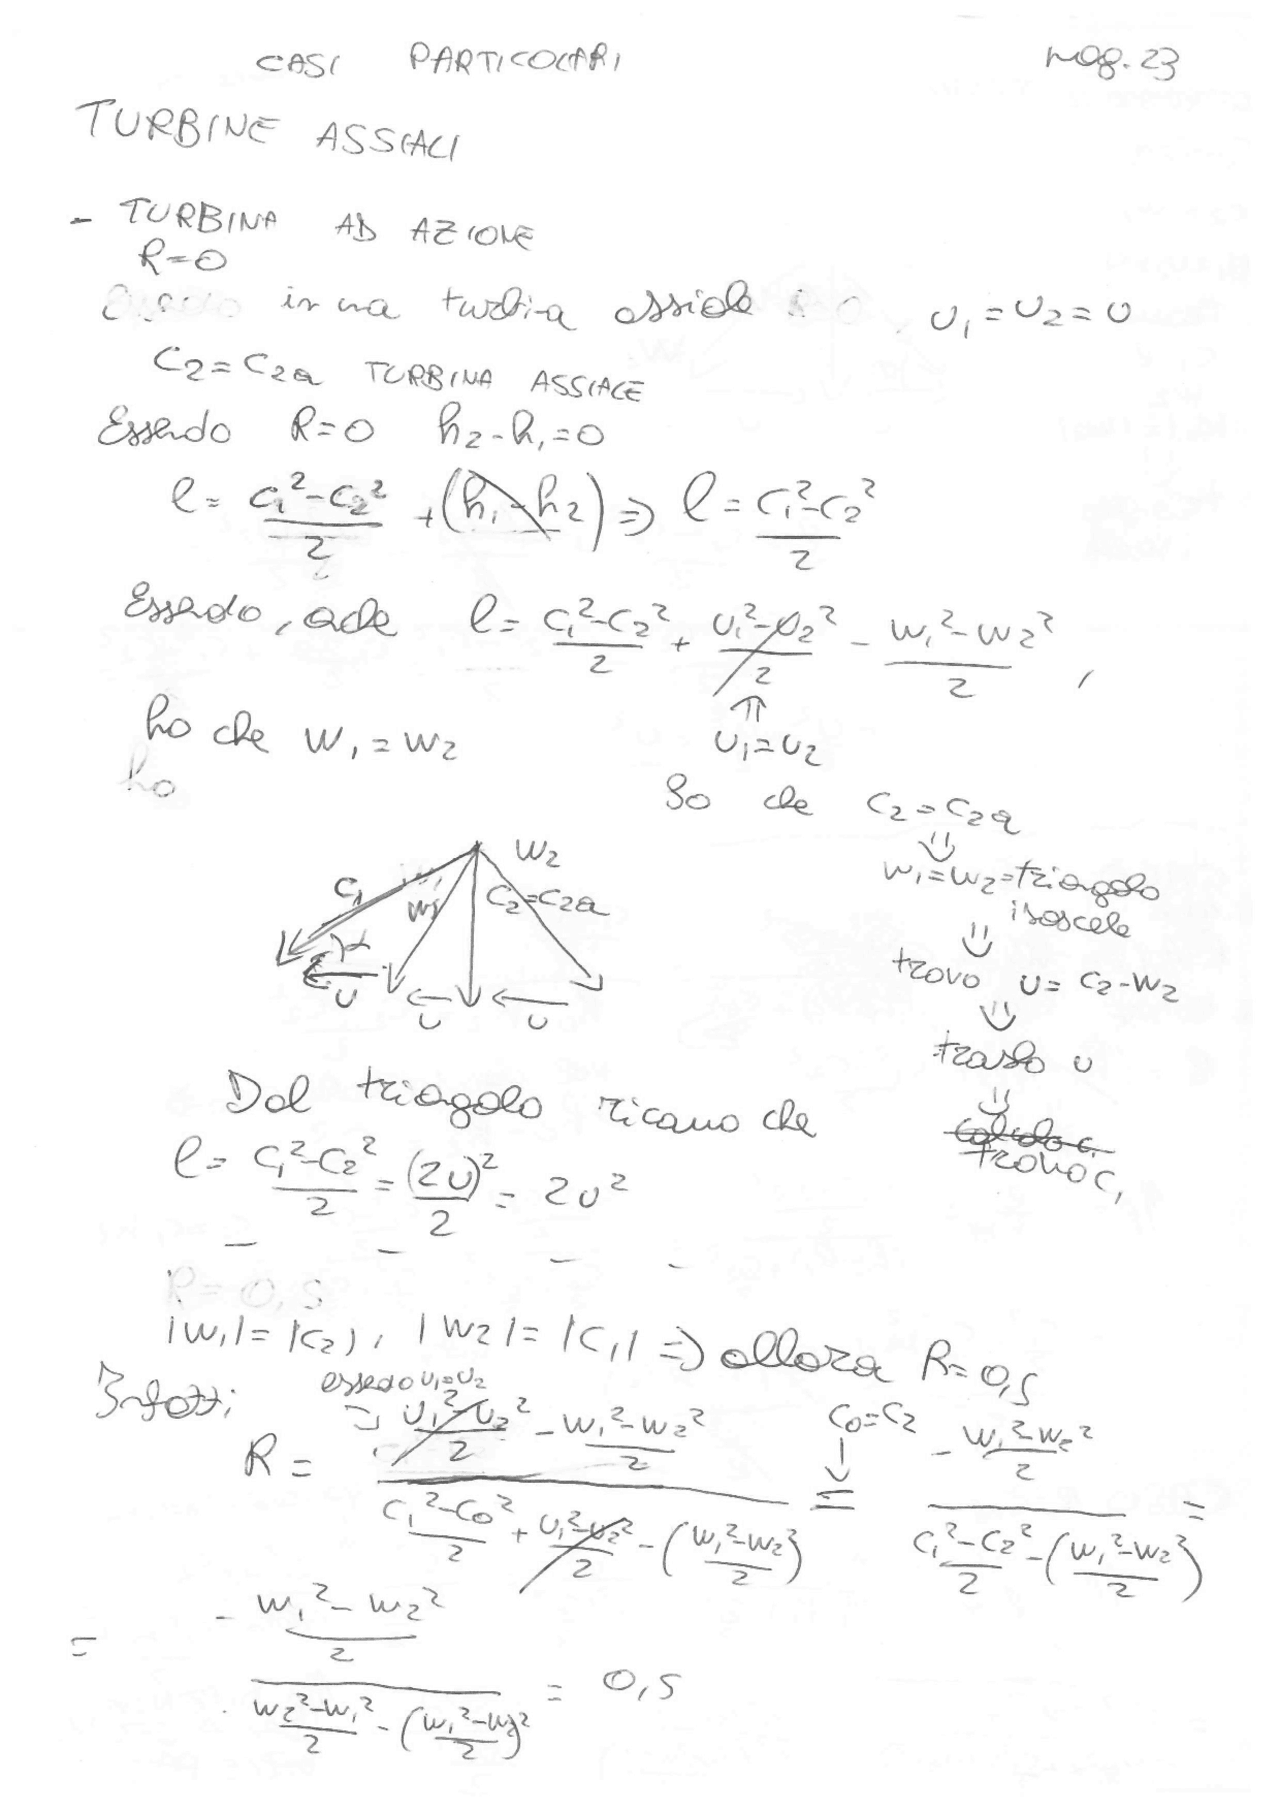 CASI PARTICOLARI pag. 23
TURBINE ASSIALI
- TURBINA AD AZIONE
R=0
in una turbina assiale u₁ = u₂ = u
c₂ = c₂ₐ TURBINA ASSIALE
Essendo R=0 h₂-h₁=0
l = (c₁²-c₂²)/2 + (h₁-h₂) ⇒ l = (c₁²-c₂²)/2
Essendo, anche l = (c₁²-c₂²)/2 + (u₁²-u₂²)/2 - (w₁²-w₂²)/2 ,
⇑
u₁=u₂
ho che w₁ = w₂
ho
So che c₂ = c₂ₐ
⇓
w₁=w₂=triangolo
isoscele
⇓
trovo u = c₂-w₂
⇓
traslo u
⇓
calcolo c₁
trovo c₁
c₁ w₁ w₂ c₂=c₂ₐ
α
u u u
Dal triangolo ricavo che
l = (c₁²-c₂²)/2 = (2u)²/2 = 2u²
R=0,5
|w₁| = |c₂|, |w₂| = |c₁| ⇒ allora R=0,5
Infatti essendo u₁=u₂
R = ((u₁²-u₂²)/2 - (w₁²-w₂²)/2) / ((c₁²-c₀²)/2 + (u₁²-u₂²)/2 - ((w₁²-w₂²)/2)) = (c₀=c₂ ↓) (-(w₁²-w₂²)/2) / ((c₁²-c₂²)/2 - ((w₁²-w₂²)/2)) =
= (-(w₁²-w₂²)/2) / ((w₂²-w₁²)/2 - ((w₁²-w₂²)/2)) = 0,5